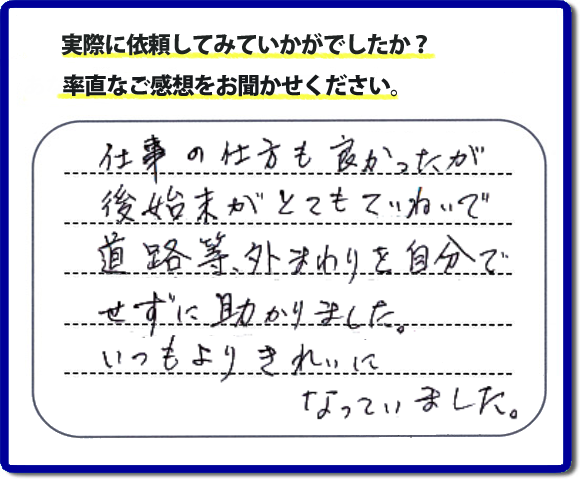 実際に依頼してみていかがでしたか？
率直なご感想をお聞かせください。
仕事の仕方も良かったが
後始末がとてもていねいで
道路等、外まわりを自分で
せずに助かりました。
いつもよりきれいに
なっていました。